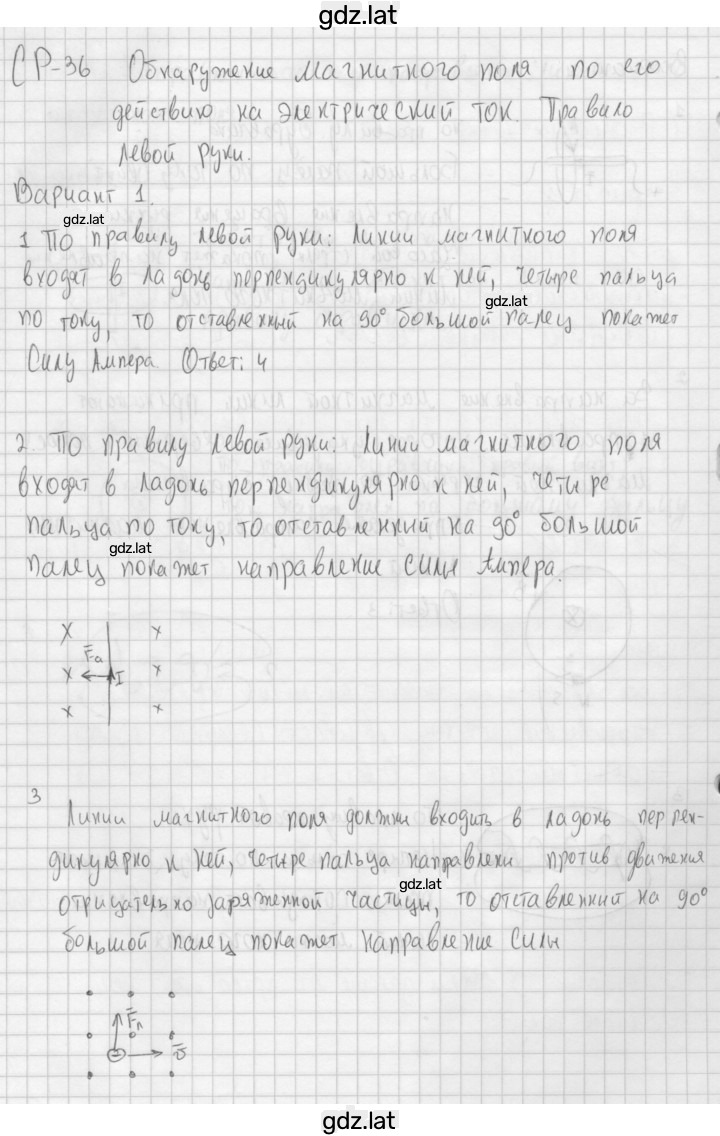 gdz.lat
СР-36 Обнаружение магнитного поля по его
действию на электрический ток. Правило
левой руки.
Вариант 1.
gdz.lat
1 По правилу левой руки: линии магнитного поля
входят в ладонь перпендикулярно к ней, четыре пальца
gdz.lat
по току, то отставленный на 90° большой палец покажет
Силу Ампера. Ответ: 4
2. По правилу левой руки: линии магнитного поля
входят в ладонь перпендикулярно к ней, четыре
пальца по току, то отставленный на 90° большой
gdz.lat
палец покажет направление силы Ампера.
x x
Fа
x I x
x x
3
Линии магнитного поля должны входить в ладонь перпен-
дикулярно к ней, четыре пальца направлены против движения
gdz.lat
отрицательно заряженной частицы, то отставленный на 90°
большой палец покажет направление силы
Fл
υ
gdz.lat